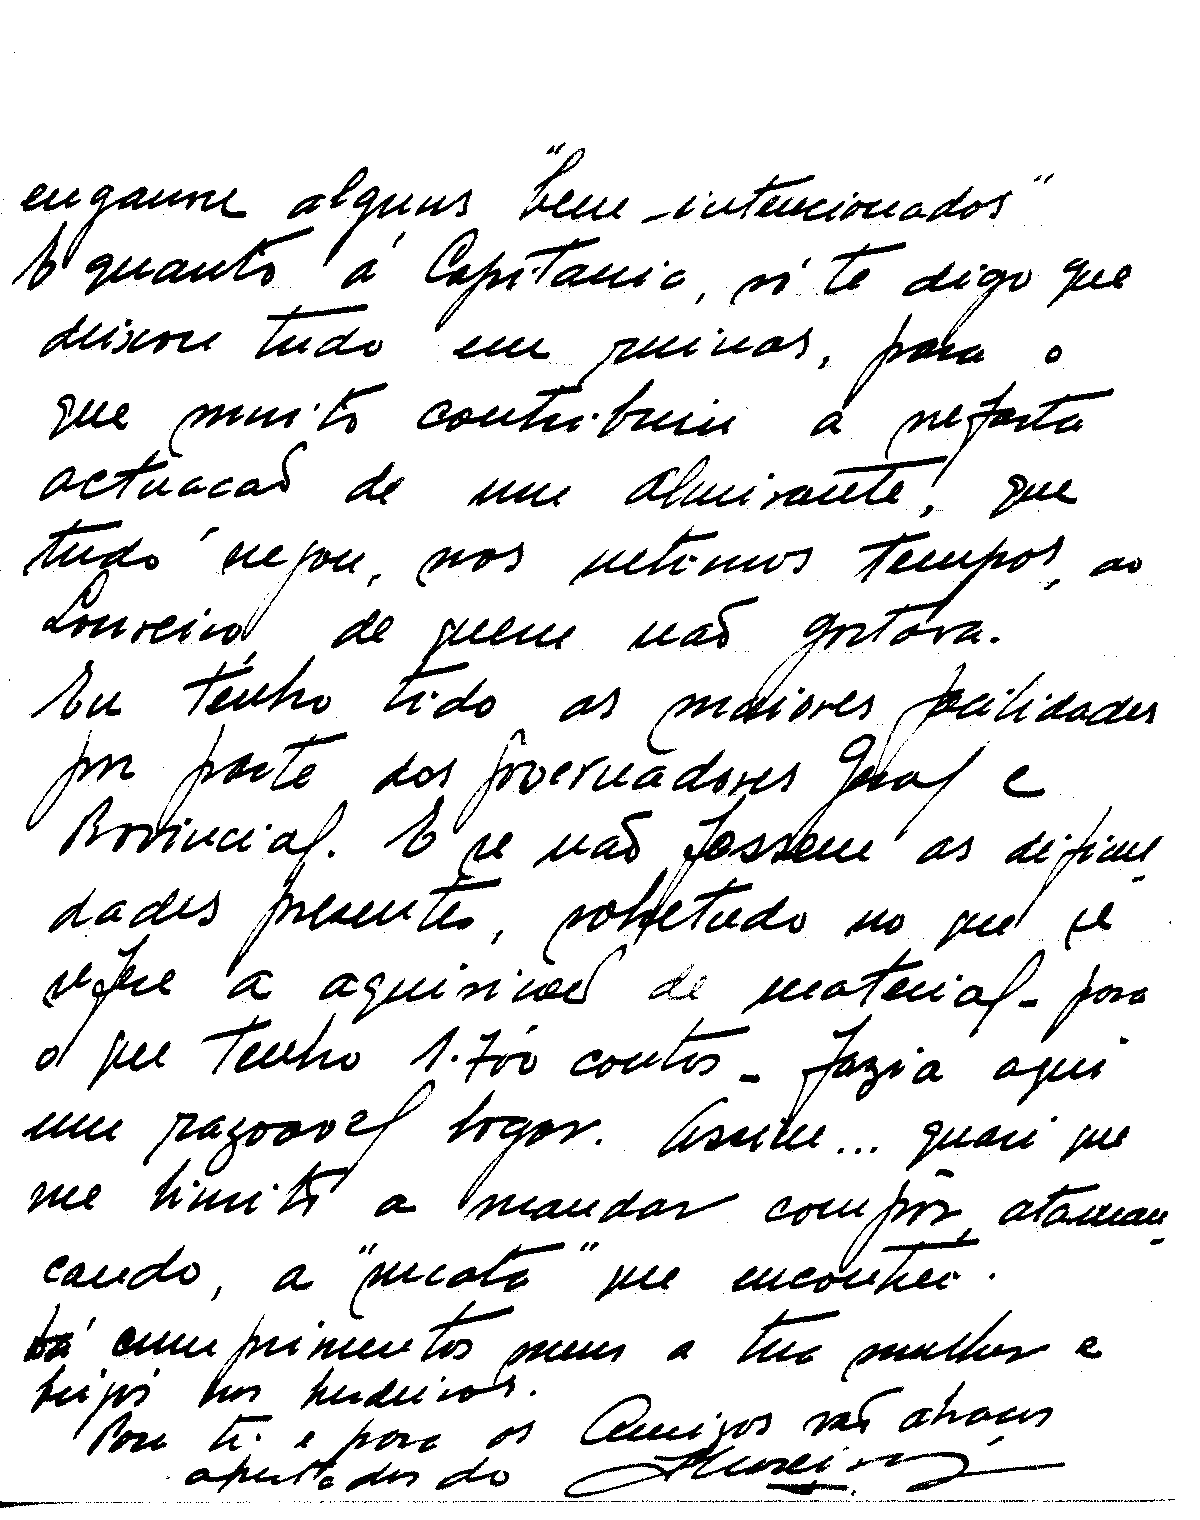 enganou alguns "bem-intencionados"
E quanto á Capitania, só te digo que
deixou tudo em ruinas, para o
que muito contribuiu a nefasta
actuacão de um Almirante, que
tudo negou, nos ultimos tempos, ao
Loureiro, de quem não gostava.
Eu tenho tido as maiores facilidades
por parte dos Governadores Geral e
Provincial. E se não fossem as dificul-
dades presentes, sobretudo no que se
refere a aquisicão de material - para
o que tenho 1.700 contos - fazia aqui
um razoavel logar. Assim... quasi que
me limito a mandar compôr, ataman-
cando, a "sucata" que encontrei.
Dá cumprimentos meus a tua mulher e
beijos aos herdeiros.
Para ti e para os Amigos vão abraços
apertados do